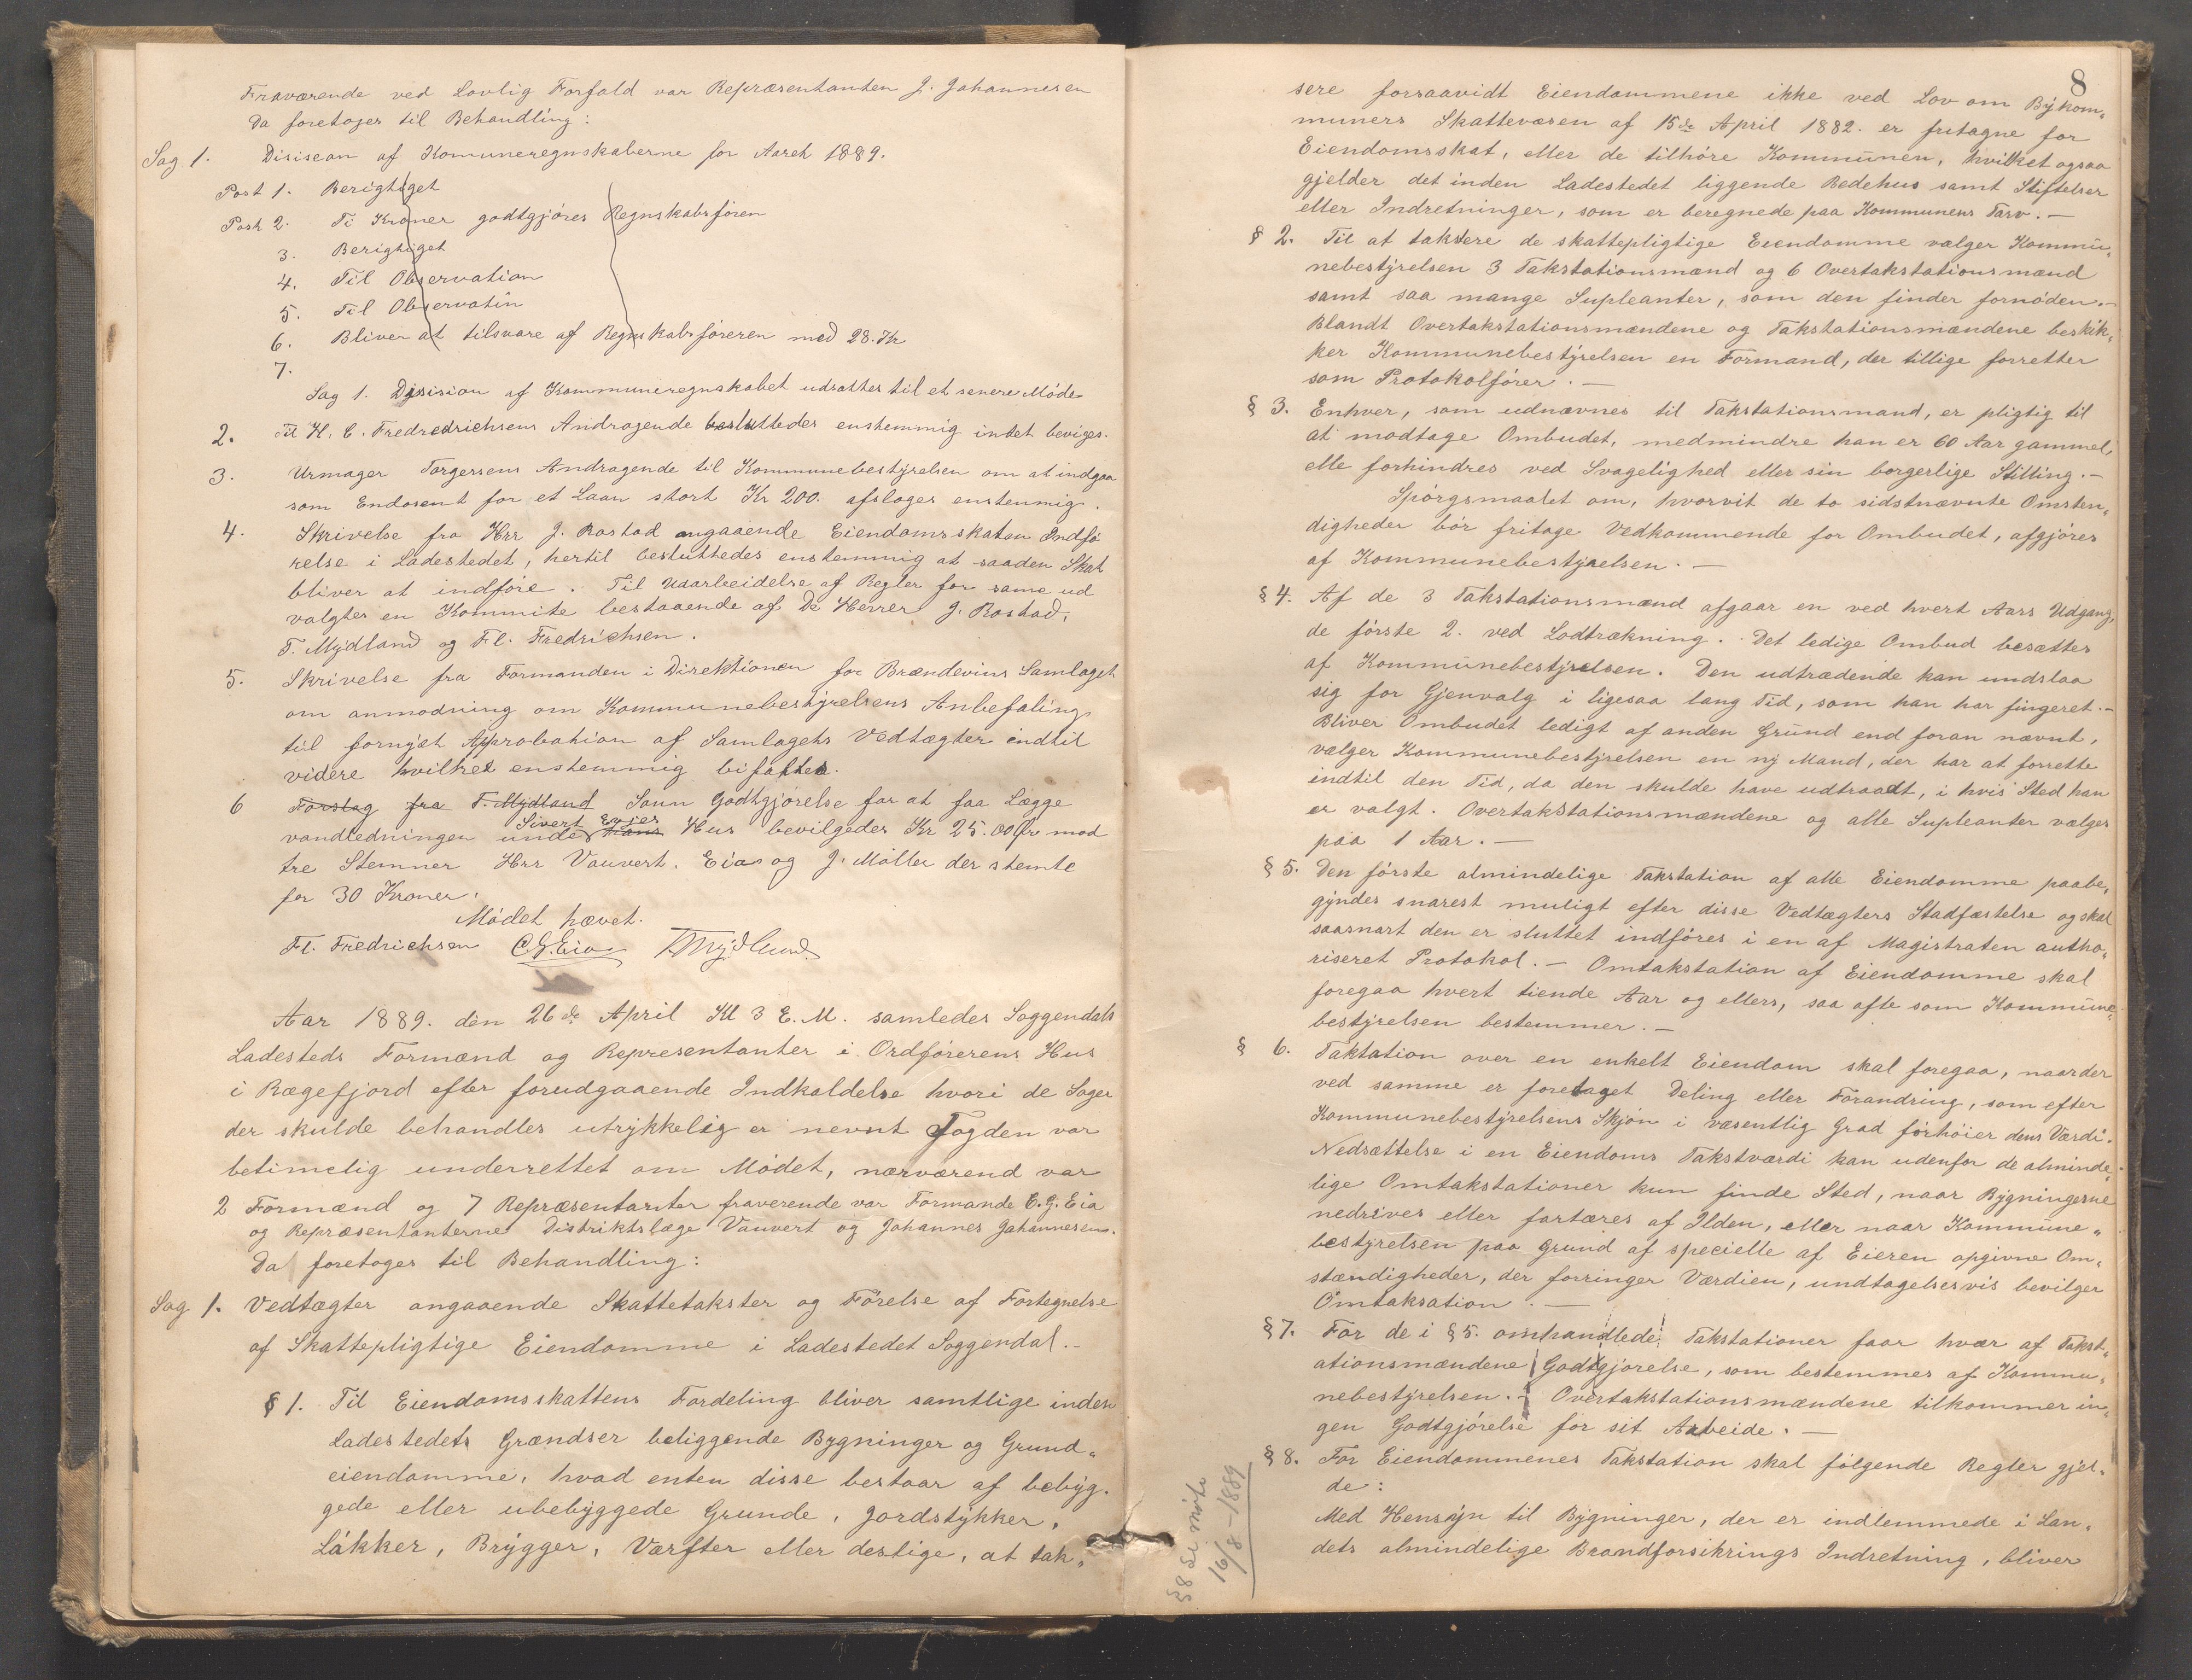 Fraværende ved Lovlig Forfald var Repræsentanten J. Johannesen
Da foretoges til Behandling:
Sag 1. Disision af Komuneregnskaberne for Aaret 1889.
Post 1. Berigtiget
Post 2. Ti Kroner godtgjöres Regnskabsfören
3. Berigtiget
4. Til Observation
5. Til Observatin
6. Bliver at tilsvare af Regnskabsföreren med 28. Kr
7.
Sag 1. Disision af Kommuneregnskabet udsattes til et senere Möde
2. Til H. C. Fredredrichsens Andragende besluttedes enstemmig intet beviges.
3. Urmager Torgersens Andragende til Kommunebestÿrelsen om at indgaa
som Endosent for et Laan stort Kr 200. afsloges enstemmig.
4. Skrivelse fra Hrr J. Rostad angaaende Eiendomsskaten Indfö
relse i Ladestedet, hertil besluttedes enstemmig at saaden Skat
bliver at indföre. Til Udarbeidelse af Regler for same ud
valgtes en Kommite bestaaende af De Herrer J. Rostad,
T. Mÿdland og Fl. Fredrichsen.
5. Skrivelse fra Formanden i Direktionen for Brændevins Samlaget
om anmodning om Kommunebestÿrelsens Anbefaling
til fornÿet Approbation af Samlagets Vedtægter indtil
videre hvilket enstemmig bifaltes.
6 Forslag fra T. Mÿdland Saun Godtgjörelse for at faa Lægge
Sivert Eyies
vandledningen under hans Hus bevilgedes Kr 25.00 Ör mod
tre Stemner Hrr Vauvert. Eia og J. Möller der stemte
for 30 Kroner.
Mödet hævet.
Fl. Fredrichsen C G. Eia T Mÿdland.
Aar 1889. den 26de April Kl 3 E. M. samledes Soggendals
Ladesteds Formænd og Representanter i Ordförerens Hus
i Rægefjord efter forudgaaende Indkaldelse hvori de Sager
der skulde behandles utrÿkkelig er nevnt Fogden var
betimelig underrettet om Mödet, nærværend var
2 Formænd og 7 Repræsentanter fraverende var Formande C. G. Eia
og Repræsentanterne Distriktslæge Vauvert og Johannes Johannesen.
Da foretoges til Behandling:
Sag 1. Vedtægter angaaende Skattetakster og Förelse af Fortegnelse
af Skattepligtige Eiendomme i Ladestedet Soggendal.-
§ 1. Til Eiendomsskattens Fordeling bliver samtlige inden
Ladestedets Grændser beliggende Bygninger og Grund„
eiendomme, hvad enten disse bestaar af bebÿg.
gede eller ubebÿggede Grunde, Jordstÿkker,
Låkker, Brÿgger, Værfter eller deslige, at tak„
8
sere forsaavidt Eiendommene ikke ved Lov om Bÿkom„
muners Skattevæsen af 15de April 1882. er fritagne for
Eiendomsskat, eller de tilhöre Kommunen, hvilket ogsaa
gjelder det inden Ladestedet liggende Bedehus samt Stiftelser
eller Indretninger, som er beregnede paa Kommunens Tarv. —
§ 2. Til at taksere de skattepligtige Eiendomme vælger Kommu„
nebestÿrelsen 3 Takstationsmænd og 6 Overtakstationsmænd
samt saa mange Supleanter, som den finder fornöden.-
Blandt Overtakstationsmændene og Takstationsmændene beskik„
ker Kommunebestÿrelsen en Formand, der tillige forretter
som Protokolförer. —
§ 3. Enhver, som udnævnes til Takstationsmand, er pligtig til
at modtage Ombudet, medmindre han er 60 Aar gammel,
elle forhindres ved Svagelighed eller sin borgerlige Stilling.-
Spörgsmaalet om, hvorvit de to sidstnævnte Omsten„
digheder bör fritage Vedkommende for Ombudet, afgjöres
af Kommunebestÿrelsen. —
§ 4. Af de 3 Takstationsmænd afgaar en ved hvert Aars Udgang,
de förste 2. ved Lodtrækning. Det ledige Ombud besættes
af Kommunebestÿrelsen. Den udtrædende kan undslaa
sig for Gjenvalg i ligesaa lang Tid, som han har fungeret.-
Bliver Ombudet ledigt af anden Grund end foran nævnt,
vælger Kommunebestÿrelsen en nÿ Mand, der har at forrette
indtil den Tid, da den skulde have udtraadt, i hvis Sted han
er valgt. Overtakstationsmændene og alle Supleanter vælges
paa 1 Aar. —
§ 5. Den förste almindelige Takstation af alle Eiendomme paabe„
gÿndes snarest muligt efter disse Vedtægters Stadfæstelse og skal
saasnart den er sluttet indföres i en af Magistraten autho„
riseret Protokol. — Omtakstation af Eiendomme skal
foregaa hvert tiende Aar og ellers, saa ofte som Kommune„
bestÿrelsen bestemmer. —
§ 6. Taktation over en enkelt Eiendom skal foregaa, naar der
ved samme er foretaget Deling eller Förandring, som efter
Kommunebestÿrelsens Skjön i væsentlig Grad forhöier dens Værdi.
Nedsættelse i en Eiendoms Takstværdi kan udenfor de alminde„
lige Omtakstationer kun finde Sted, naar Bÿgningerne
nedrives eller fortæres af Ilden, eller naar Kommune„
bestÿrelsen paa Grund af specielle af Eieren opgivne Om„
stændigheder, der forringer Værdien, undtagelsesvis bevilger
Omtaksation. —
§ 7. For de i § 5. omhandlede Takstationer faar hver af Takst„
ationsmændene Godtgjörelse, som bestemmes af Kommu„
nebestÿrelsen. - Overtakstationsmændene tilkommer in„
gen Godtgjörelse for sit Arbeide. —
§ 8. For Eiendommenes Takstation skal fölgende Regler gjel„
de:
Med Hensÿn til Bÿgninger, der er indlemmede i Lan„
dets almindelige Brandforsikrings Indretning, bliver
§ 8 Se möte
16/8 - 1889